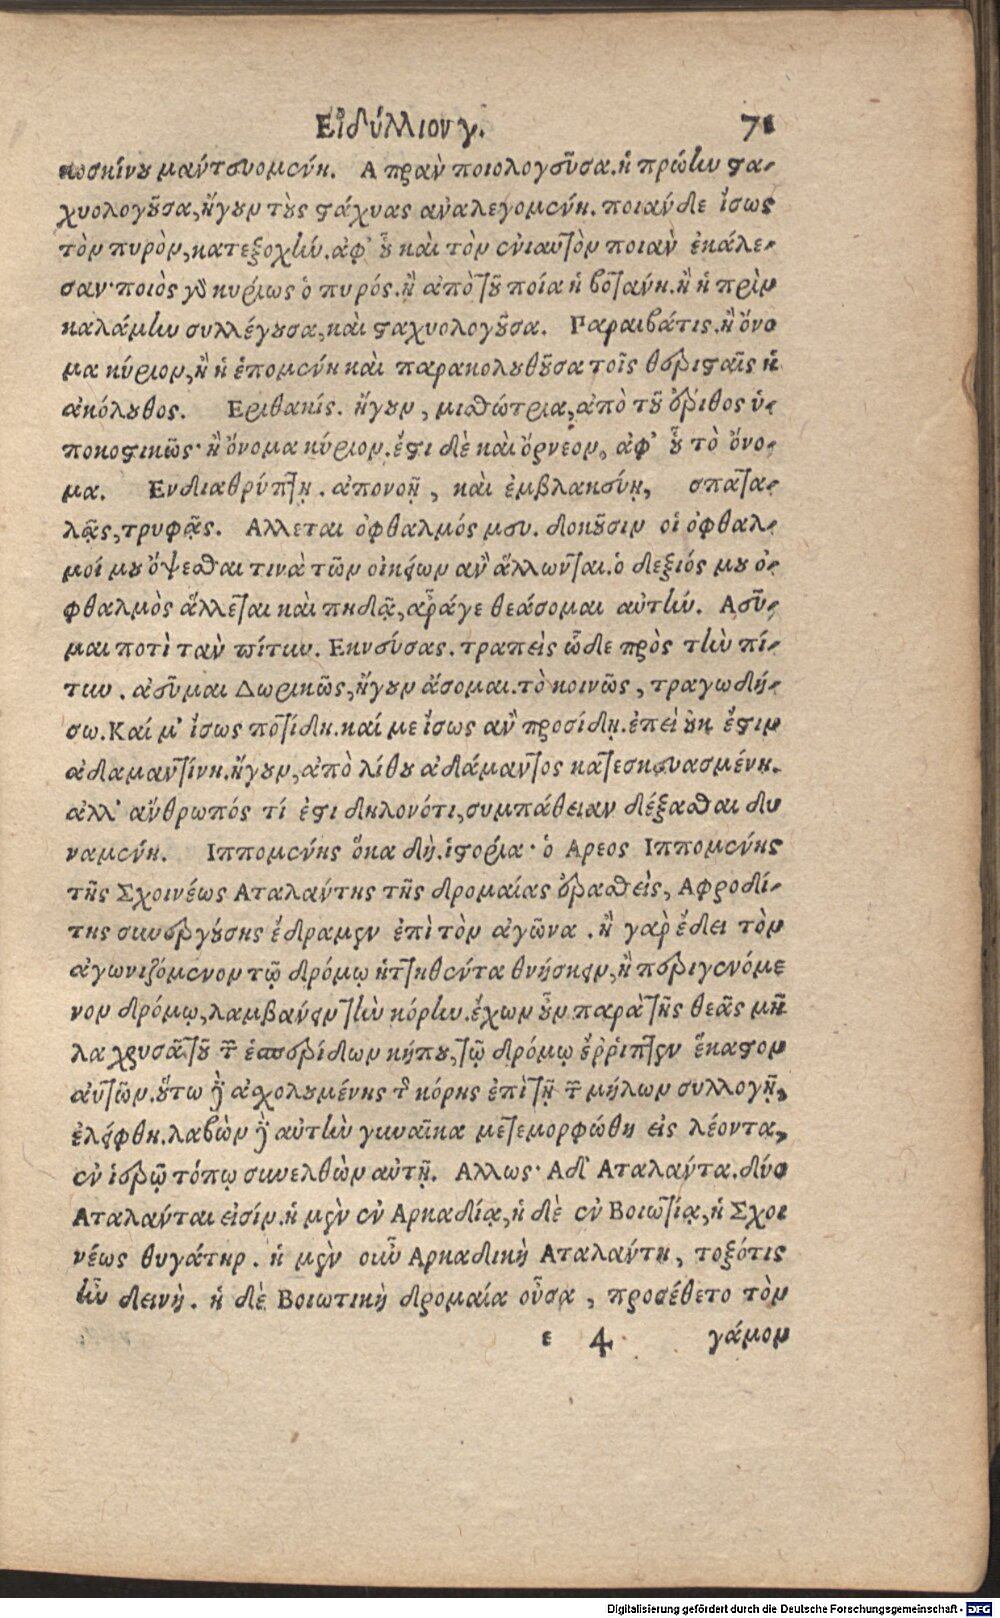 Εἰδύλλιον γ. 71
κοσκίνου μαντευομένη. Α πρὰν ποιολογεῦσα. ἡ πρώην στα-
χυολογοῦσα, ἤγουν τοὺς στάχυας ἀναλεγομένη. ποιὰν δὲ ἴσως
τὸν πυρὸν, κατεξοχήν. ἀφ' οὗ καὶ τὸν ἐνιαυτὸν ποιὰν ἐκάλε-
σαν· ποιὸς γὰρ κυρίως ὁ πυρός. ἢ ἀπὸ τοῦ ποία ἡ βοτάνη. ἢ ἡ πρὶν
καλάμην συλλέγουσα, καὶ σταχυολογοῦσα. Παραιβάτις. ἢ ὄνο
μα κύριον, ἢ ἡ ἑπομένη καὶ παρακολουθοῦσα τοῖς θερισταῖς ἡ
ἀκόλουθος. Εριθακίς. ἤγουν, μισθώτρια, ἀπὸ τοῦ ἔριθος ὑ-
ποκοστικῶς· ἢ ὄνομα κύριον. ἔστι δὲ καὶ ὄρνεον, ἀφ' οὗ τὸ ὄνο-
μα. Ενδιαθρύπτῃ. ἀπονοῇ, καὶ ἐμβλακεύῃ, σπατα-
λᾷς, τρυφᾷς. Αλλεται ὀφθαλμός μευ. δοκοῦσιν οἱ ὀφθαλ-
μοί μου ὄψεσθαι τινὰ τῶν οἰκείων ἂν ἅλλωνται. ὁ δεξιός μου ὀ-
φθαλμὸς ἅλλεται καὶ πηδᾷ, ἆράγε θεάσομαι αὐτήν. Ασεῦ-
μαι ποτὶ τὰν πίτυν. Εκνεύσας. τραπεὶς ὧδε πρὸς τὴν πί-
τυν. ἀσεῦμαι Δωρικῶς, ἤγουν ᾄσομαι. τὸ κοινῶς, τραγωδή-
σω. Καί μ' ἴσως ποτίδη. καί με ἴσως ἂν προσίδῃ. ἐπεὶ οὐκ ἔστιν
ἀδαμαντίνη. ἤγουν, ἀπὸ λίθου ἀδάμαντος κατεσκευασμένη.
ἀλλ' ἄνθρωπός τί ἐστι δηλονότι, συμπάθειαν δέξασθαι δυ
ναμένη. Ιππομένης ὅκα δὴ. ἱστορία· ὁ Αρεος Ιππομένης
τῆς Σχοινέως Αταλάντης τῆς δρομαίας ἐρασθεὶς, Αφροδί-
της συνεργούσης ἔδραμεν ἐπὶ τὸν ἀγῶνα. ἢ γὰρ ἔδει τὸν
ἀγωνιζόμενον τῷ δρόμῳ ἡττηθέντα θνήσκειν, ἢ περιγενόμε
νον δρόμῳ, λαμβάνειν τὴν κόρην. ἔχων οὖν παρὰ τῆς θεᾶς μῆ
λα χρυσᾶ τοῦ τῶν ἑσπερίδων κήπου, τῷ δρόμῳ ἐῤῥίπτεν ἕκαστον
αὐτῶν. οὕτω δὲ ἀσχολουμένης τῆς κόρης ἐπὶ τῇ τῶν μήλων συλλογῇ,
ἐλείφθη. λαβὼν δὲ αὐτὴν γυναῖκα μετεμορφώθη εἰς λέοντα,
ἐν ἱερῷ τόπῳ συνελθὼν αὐτῇ. Αλλως· Αδ' Αταλάντα. δύο
Αταλάνται εἰσίν. ἡ μὲν ἐν Αρκαδίᾳ, ἡ δὲ ἐν Βοιωτίᾳ, ἡ Σχοι
νέως θυγάτηρ. ἡ μὲν οὖν Αρκαδικὴ Αταλάντη, τοξότις
ἦν δεινὴ. ἡ δὲ Βοιωτικὴ δρομαία οὖσα, προσέθετο τὸν
ε 4 γάμον
Digitalisierung gefördert durch die Deutsche Forschungsgemeinschaft - DFG